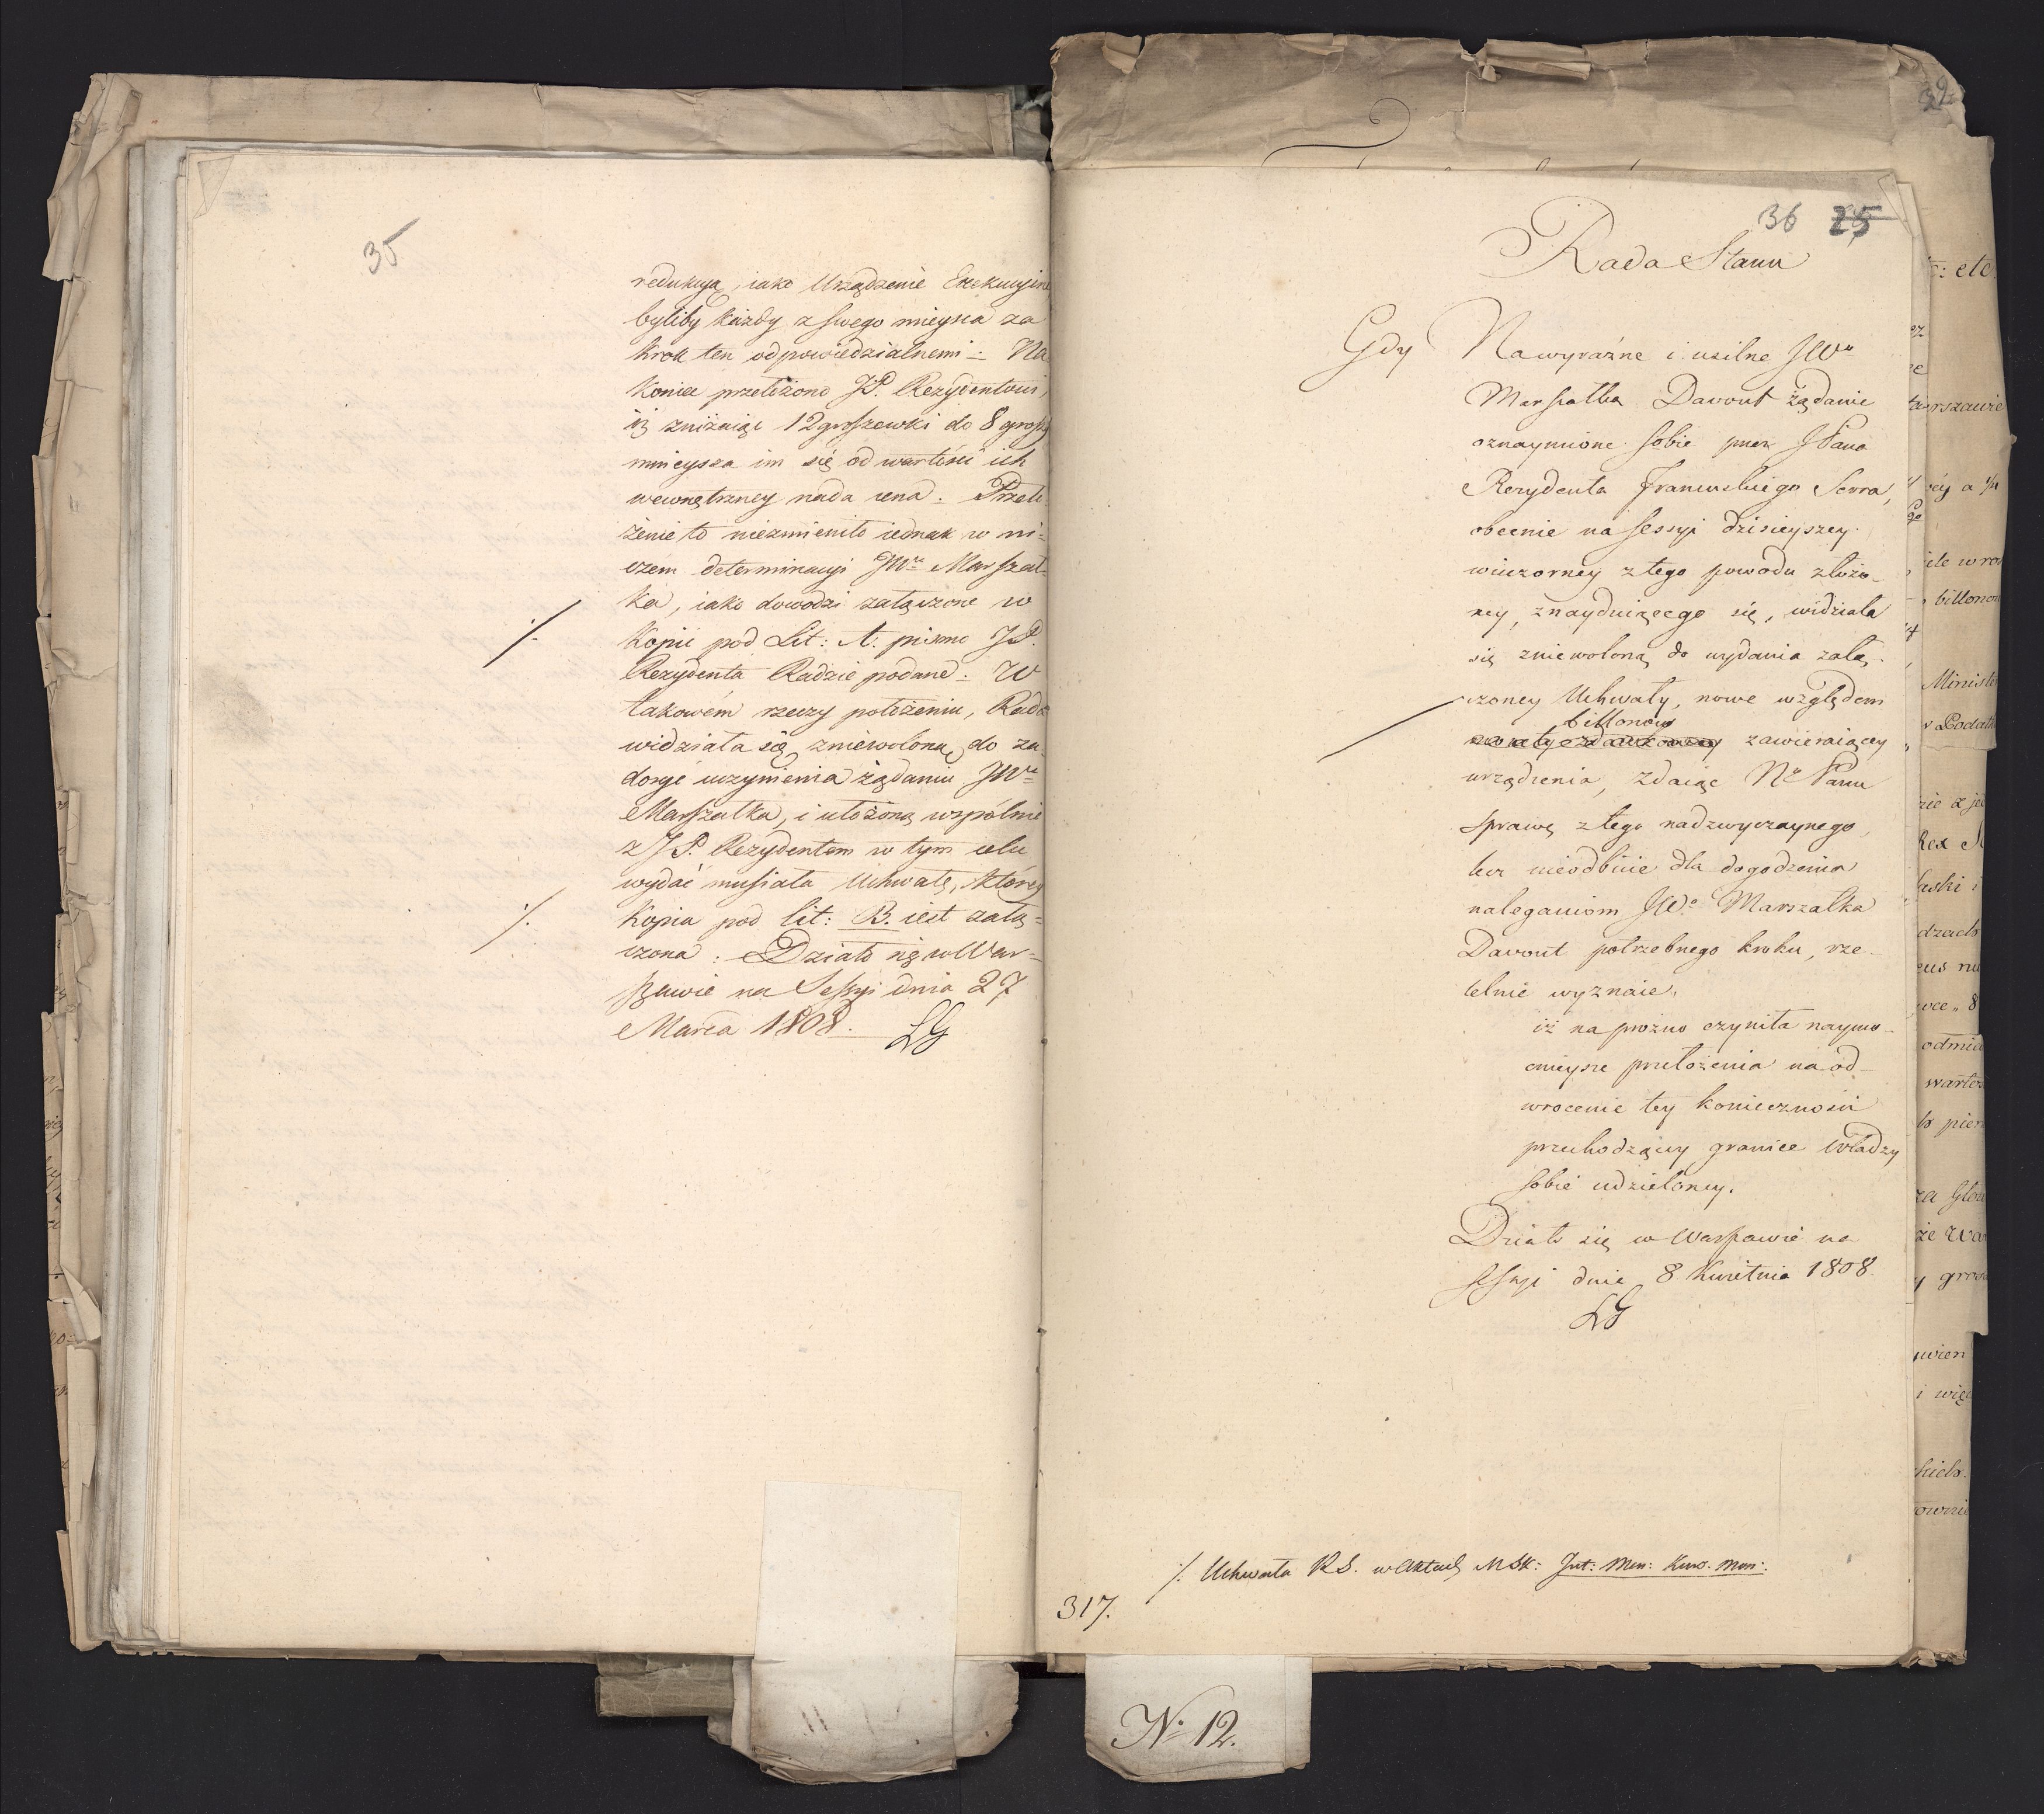 35
redukuią, iako Urządzenie Exekucyine
byliby każdy z swego mieysca za
krok ten odpowiedzialnemi. Na
koniec przełożono JP. Rezydentowi,
iż zniżaiąc 12 groszewki do 8 groszy
mnieysza im się od wartości ich
wewnętrzney nada cena. Przeło
żenie to niezmieniło iednak w ni=
czem determinacyi JW. Marszał
ka, iako dowodzi załączone w
./.
Kopii pod Lit: A. pismo JP.
Rezydenta Radzie podane. W
takowém rzeczy położeniu, Rada
widziała się zniewoloną do za
dosyć uczynienia żądaniu JWo
Marszałka, i ułożoną wspólnie
z JP. Rezydentem w tym celu
wydać musiała Uchwałę, któréy
./.
Kopia pod lit: B. iest załą=
czona. Działo się w War=
szawie na Sessyi dnia 27
Marca 1808. LG
32
36 25
Rada Stanu
Gdy Na wyraźne i usilne JWo
Marszałka Davout żądanie
oznaymione sobie przez JPana
Rezydenta Francuskiego Serra,
obecnie na Sessyi dzisieyszey
wieczorney z tego powodu złożo-
ney, znayduiącego się, widziała
się zniewoloną do wydania załą-
czoney Uchwały, nowe względem
billonow
zawieraiącey
urządzenia, zdaiąc No Panu
Sprawę z tego nadzwyczaynego,
lecz nieodbicie dla dogodzenia
naleganiom JWo Marszałka
Davout potrzebnego kroku, rze-
telnie wyznaie,
iż na prożno czyniła naymo-
cnieysze przełożenia na od-
wrocenie tey konieczności
przechodzącey granice władzy
sobie udzieloney.
Działo się w Warszawie na
Sessyi dnia 8 Kwietnia 1808.
LG
./. Uchwała R.S. w Aktach MSK: Int: Men: Kurs. Mon:
317.
No 12.